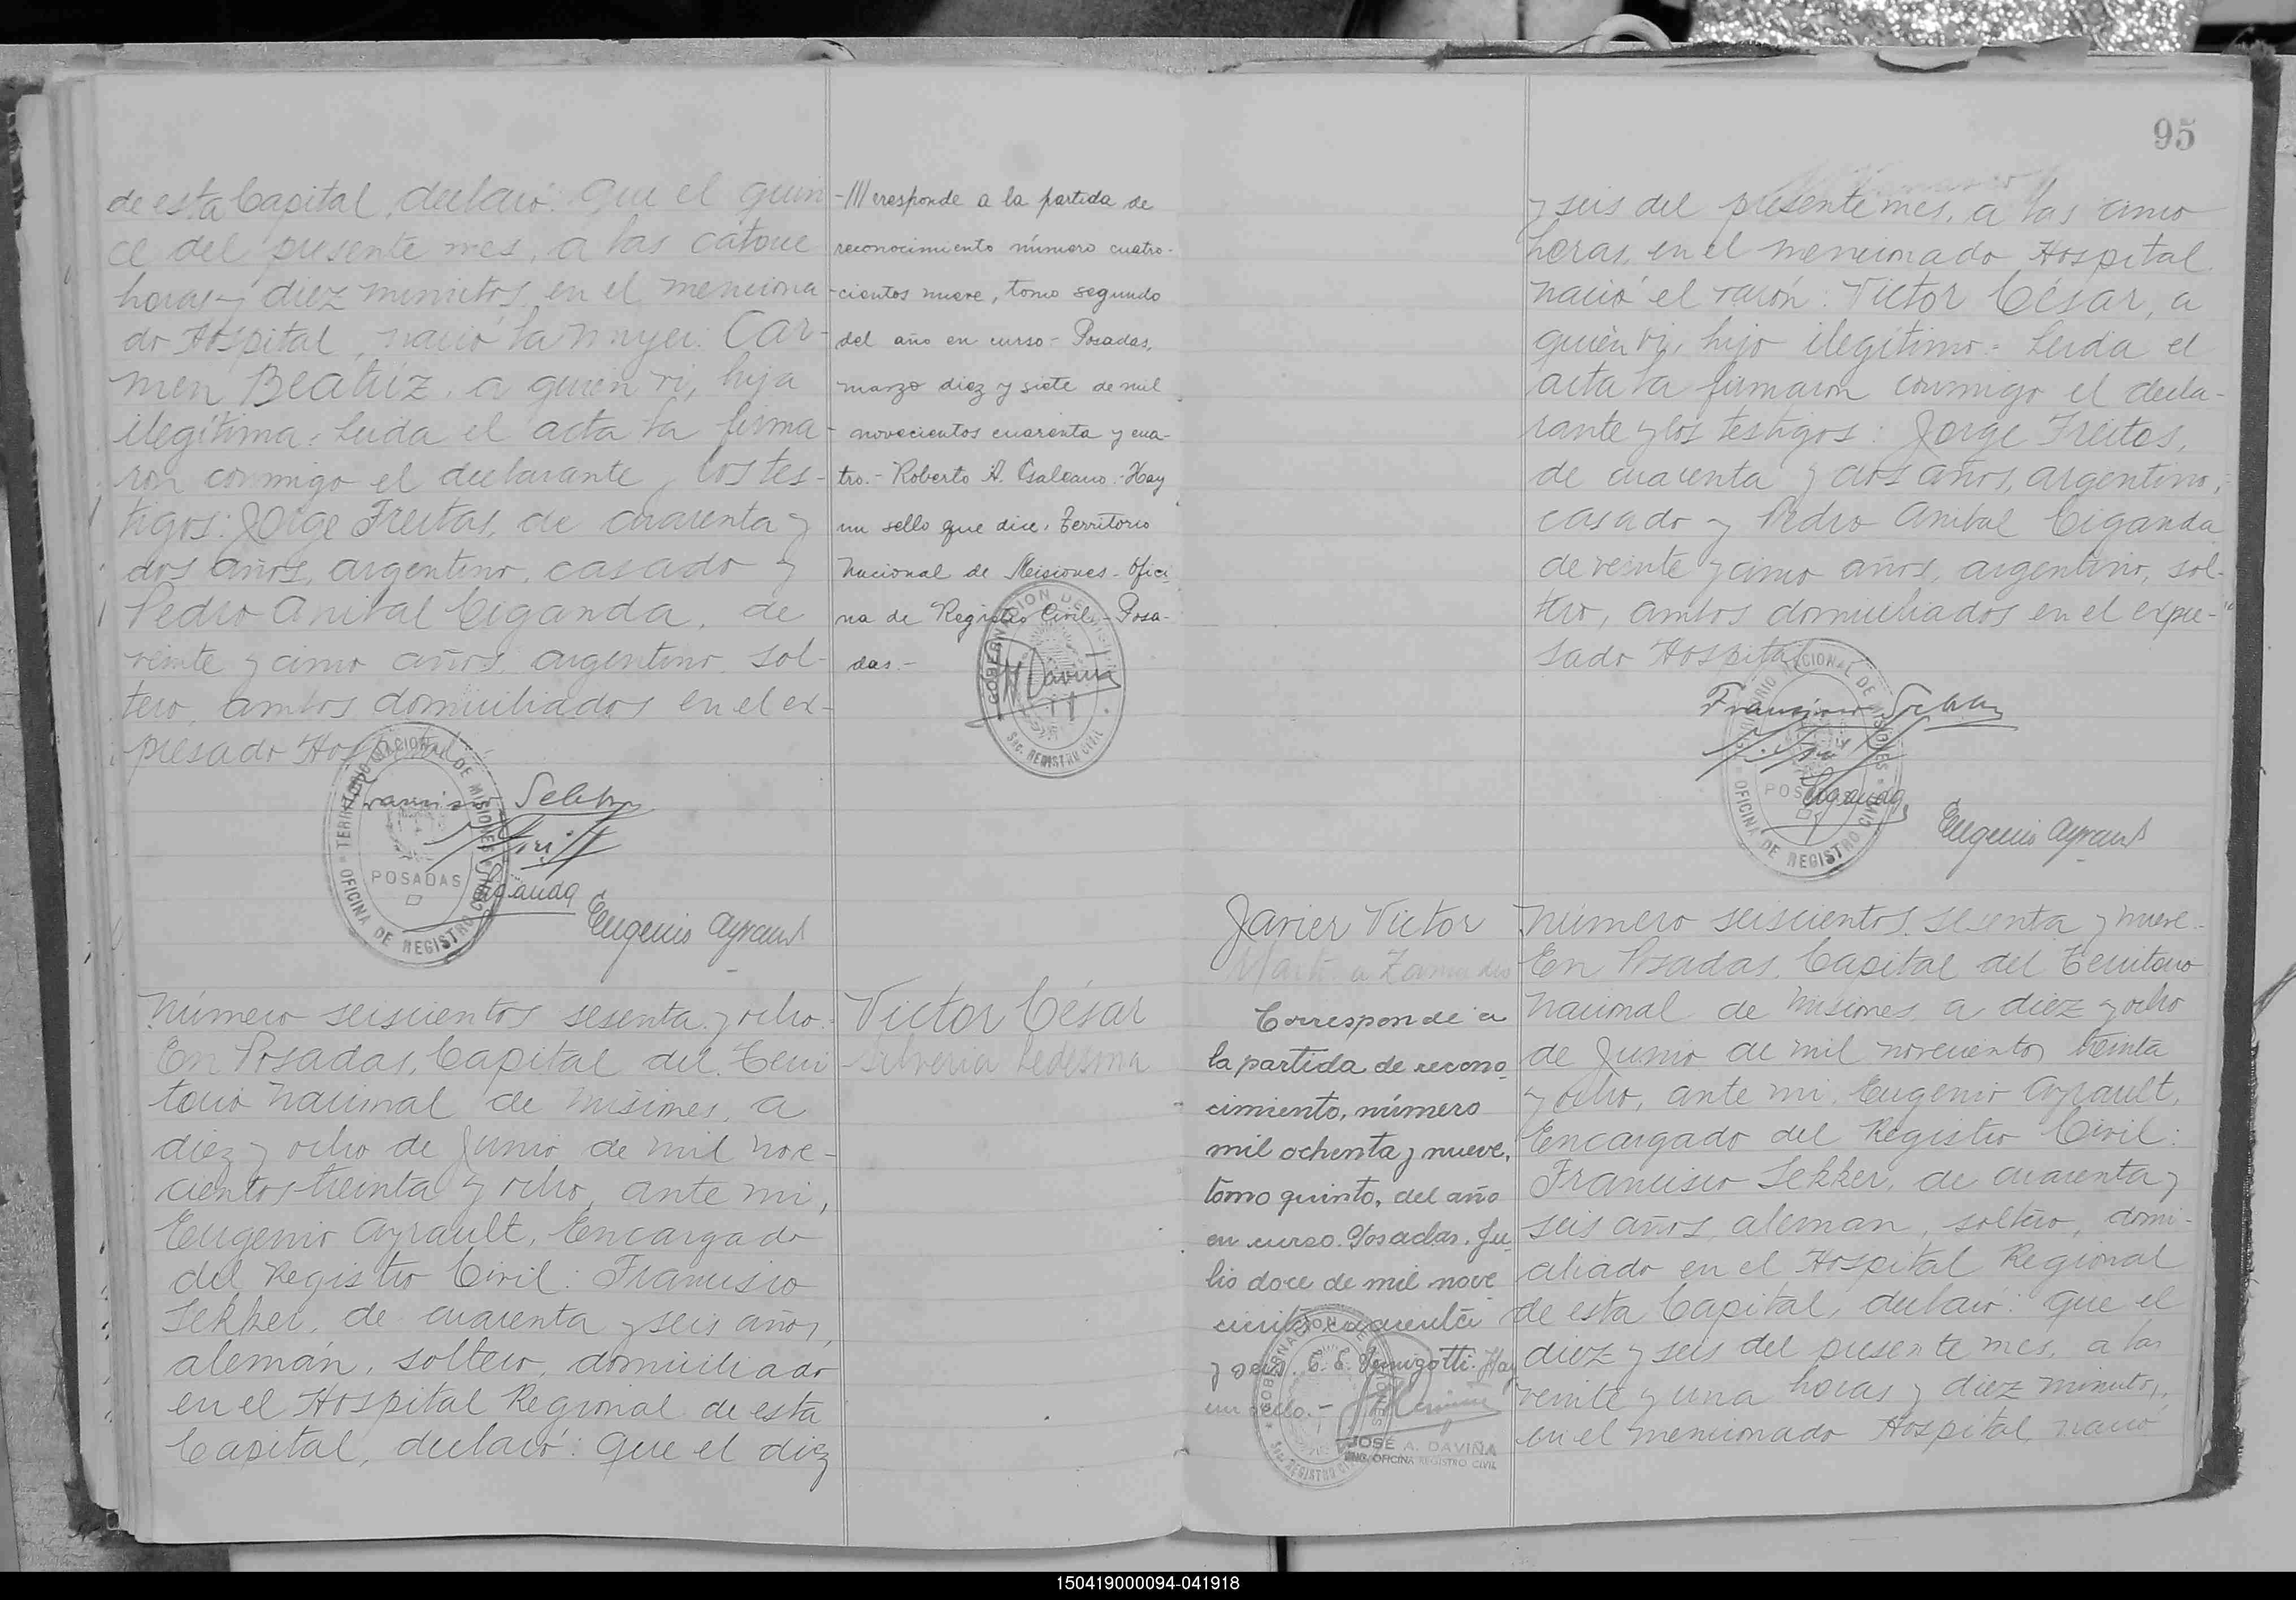 de esta Capital, declaró: Que el quin
ce del presente mes, a las catorce
horas y diez minutos en el menciona
do Hospital, nació la mujer: Car-
men Beatriz, a quien vi, hija
ilegítima. Leida el acta la firma-
ron conmigo el declarante y los tes-
tigos: Jorge Freitas, de cuarenta y
dos años, argentino, casado y
Pedro Anibal Ciganda, de
veinte y cinco años, argentino, sol-
tero, ambos domiciliados en el ex-
presado Hospital
TERRITORIO NACIONAL DE MISIONES
POSADAS
OFICINA DE REGISTRO CIVIL
Ciganda
Eugenio Ayrault
Número seiscientos sesenta y ocho.
En Posadas, Capital del Terri
torio Nacional de Misiones, a
diez y ocho de Junio de mil nove-
cientos treinta y ocho, ante mi,
Eugenio Ayrault, Encargado
del Registro Civil: Francisco
Sekker, de cuarenta y seis años,
alemán, soltero, domiciliado
en el Hospital Regional de esta
Capital, declaró: Que el diez
-///rresponde a la partida de
reconocimiento número cuatro-
cientos nueve, tomo segundo
del año en curso - Posadas,
marzo diez y siete de mil
novecientos cuarenta y cua-
tro.- Roberto A. Galeano.- Hay
un sello que dice, Territorio
Nacional de Misiones - Ofici
na de Registro Civil.- Posa-
das.-
GOBERNACION DE MISIONES
SEC. REGISTRO CIVIL
Victor César
Silveria Ledesma
95
y seis del presente mes, a las cinco
horas, en el mencionado Hospital
nació el varón: Victor César, a
quien vi, hijo ilegítimo.- Leida el
acta la firmaron conmigo el decla-
rante y los testigos: Jorge Freitas,
de cuarenta y dos años, argentino,
casado y Pedro Anibal Ciganda
de veinte y cinco años, argentino, sol-
tero, ambos domiciliados en el expre-
sado Hospital
TERRITORIO NACIONAL DE MISIONES
Francisco Sekker
POSADAS
Ciganda
OFICINA DE REGISTRO CIVIL
Eugenio Ayrault
Javier Victor
Corresponde a
la partida de recono-
cimiento, número
mil ochenta y nueve,
tomo quinto, del año
en curso. Posadas, Ju-
lio doce de mil nove
cientos cuarenta
y seis. Hay
un sello.-
GOBERNACION DE MISIONES
SEC. REGISTRO CIVIL
JOSÉ A. DAVIÑA
ENC. OFICINA REGISTRO CIVIL
Número seiscientos sesenta y nueve.
En Posadas, Capital del Territorio
Nacional de Misiones, a diez y ocho
de Junio de mil novecientos treinta
y ocho, ante mi, Eugenio Ayrault,
Encargado del Registro Civil:
Francisco Sekker, de cuarenta y
seis años, aleman, soltero, domi-
ciliado en el Hospital Regional
de esta Capital, declaró: Que el
diez y seis del presente mes, a las
veinte y una horas y diez minutos,
en el mencionado Hospital, nació
150419000094-041918